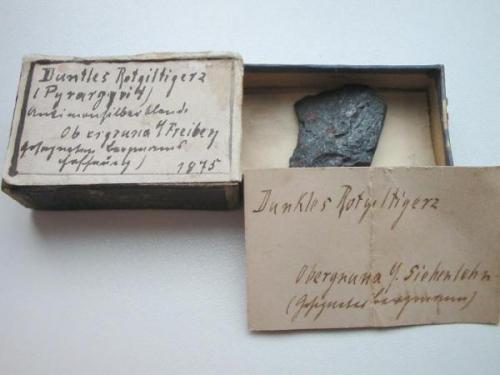 Dunkles Rotgiltigerz
(Pyrargyrit)
Antimonsilberblende
Obergruna b/ Freiberg
Gesegnete Bergmanns
Hoffnung)
1875
Dunkles Rotgiltigerz
Obergruna b. Siebenlehn